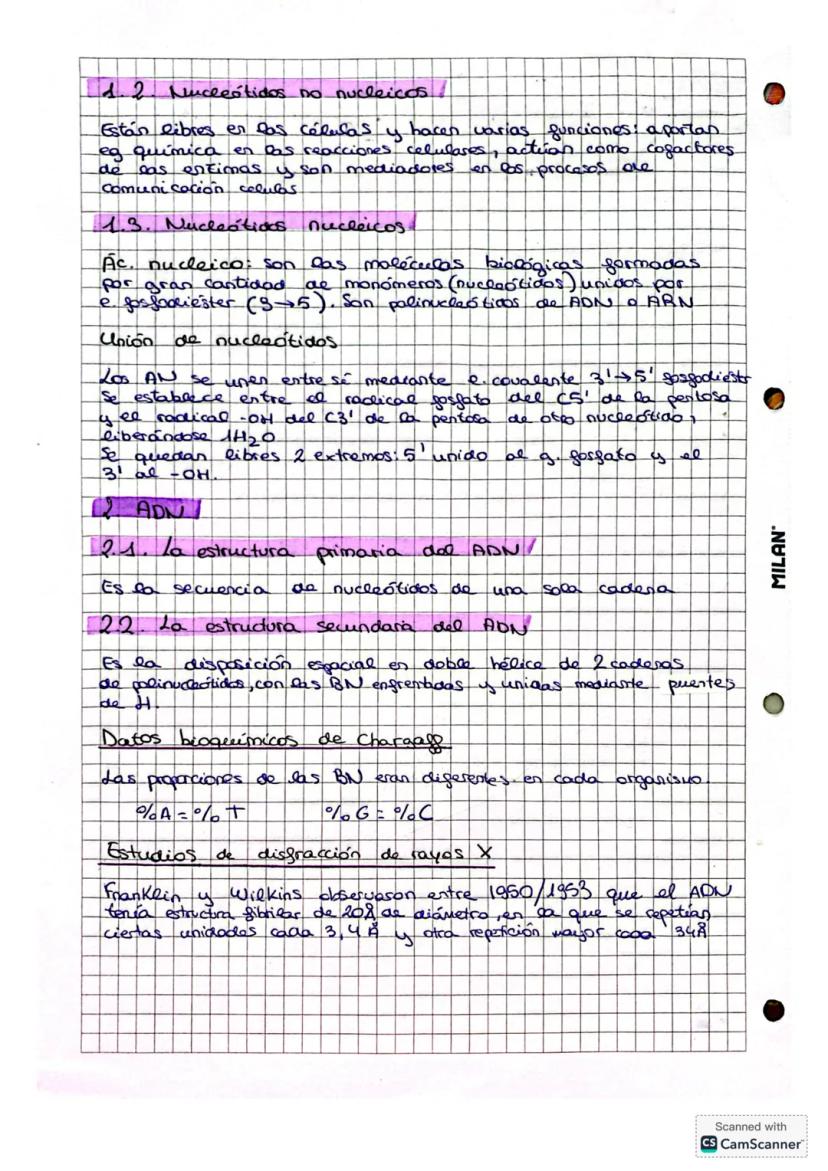 1.2. Nucleótidos no nucleicos
Están libres en las células y hacen varias funciones: aportan
eg química en las reacciones celulares, actúan como cofactores
de las enzimas y son mediadores en los procesos de
comunicación celular
1.3. Nucleótidos nucleicos
Ác. nucleico: son las moléculas biológicas formadas
por gran cantidad de monómeros (nucleótidos) unidos por
e. fosfodiéster (3→5). Son polinucleótidos de ADN o ARN
Unión de nucleótidos
Los AN se unen entre sí mediante e. covalente 3'→5' fosfodiéstr
Se establece entre el radical fosfato del C5' de la pentosa
y el radical -OH del C3' de la pentosa de otro nucleótido,
liberándose 1H2O
Se quedan libres 2 extremos: 5' unido al g. fosfato y el
3' al -OH.
2 ADN
2.1. La estructura primaria del ADN
Es la secuencia de nucleótidos de una sola cadena
2.2. La estructura secundaria del ADN
Es la disposición espacial en doble hélice de 2 cadenas
de polinucleótidos, con las BN enfrentadas y unidas mediante puentes
de H.
Datos bioquímicos de Chargaff
Las proporciones de las BN eran diferentes en cada organismo.
%A = %T %G = %C
Estudios de disfracción de rayos X
Franklin y Wilkins observaron entre 1950/1953 que el ADN
tenía estructura fibrilar de 20Å de diámetro, en la que se repetían
ciertas unidades cada 3,4 Å y otra repetición mayor cada 34Å
MILAN
Scanned with
CS CamScanner